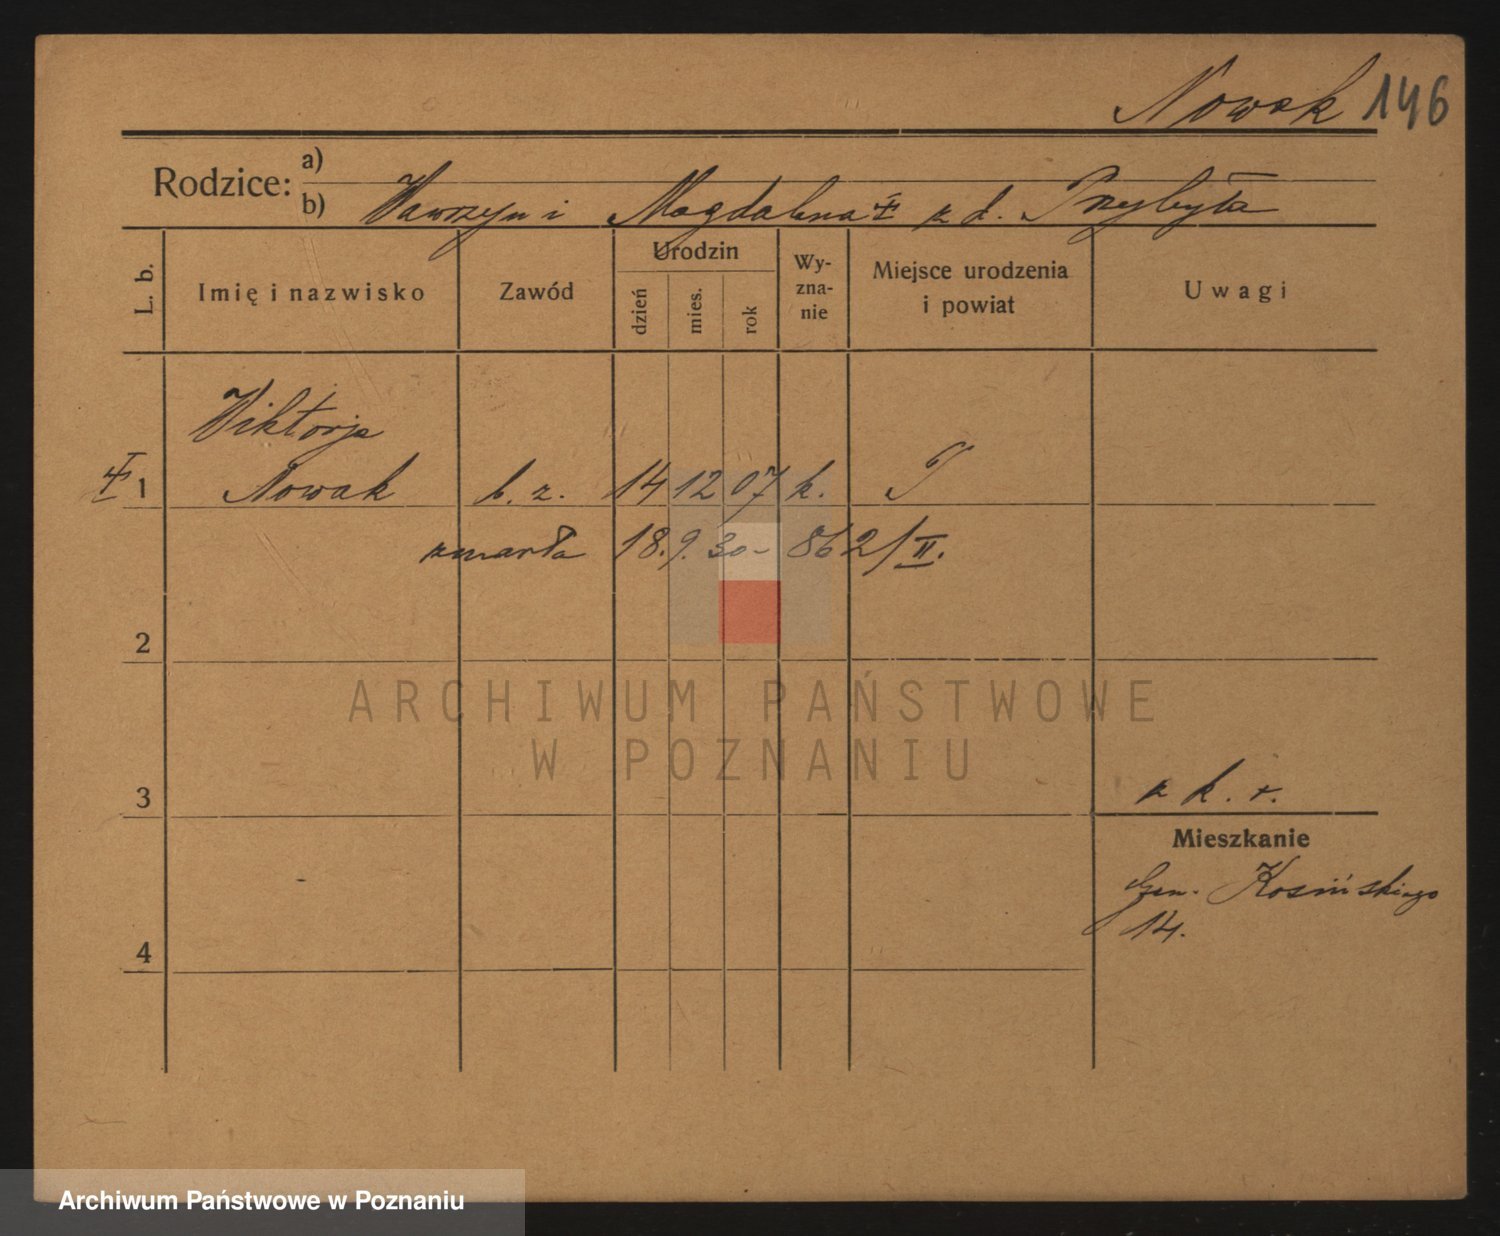 Nowak 146
Rodzice: a)
b) Wawrzyn i Magdalena ‡ z d. Przybyła
L. b.
Imię i nazwisko
Zawód
Urodzin
dzień
mies.
rok
Wy-
zna-
nie
Miejsce urodzenia
i powiat
Uwagi
Wiktorja
‡ 1 Nowak b. z. 14 12 07 k. P
zmarła 18. 9. 30 - 862/II.
2
ARCHIWUM PAŃSTWOWE
W POZNANIU
z k. r.
3
Mieszkanie
Gen. Kosińskiego
14.
4
Archiwum Państwowe w Poznaniu